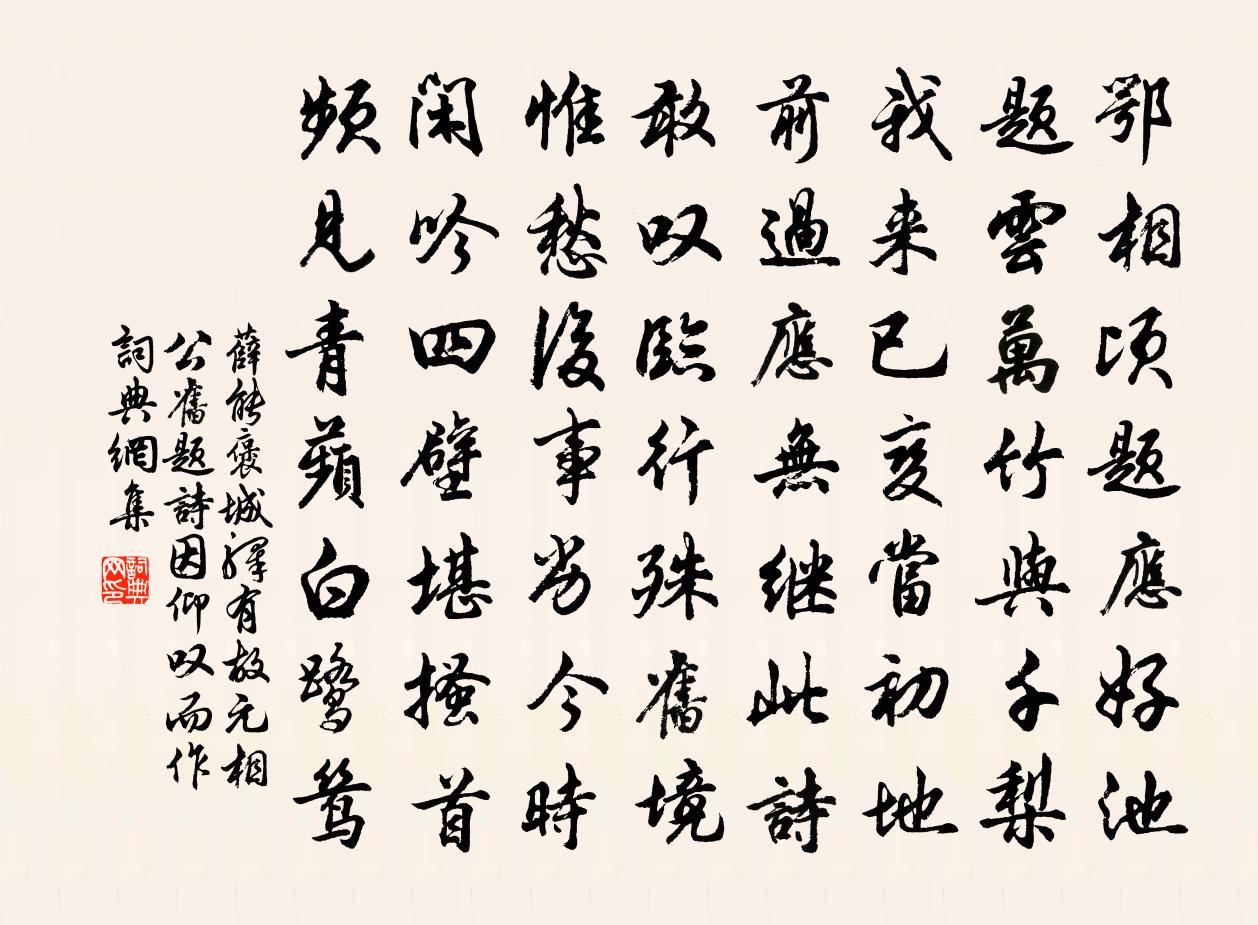 鄂相頃題應好池
題雲萬竹與千梨
我来已變當初地
前過應無継此詩
敢叹臨行殊舊境
惟愁後事劣今時
閑吟四壁堪搔首
頻見青蘋白鷺鸶
薛能褒城驛有故元相
公舊題詩因仰叹而作
詞典網集
詞典网印